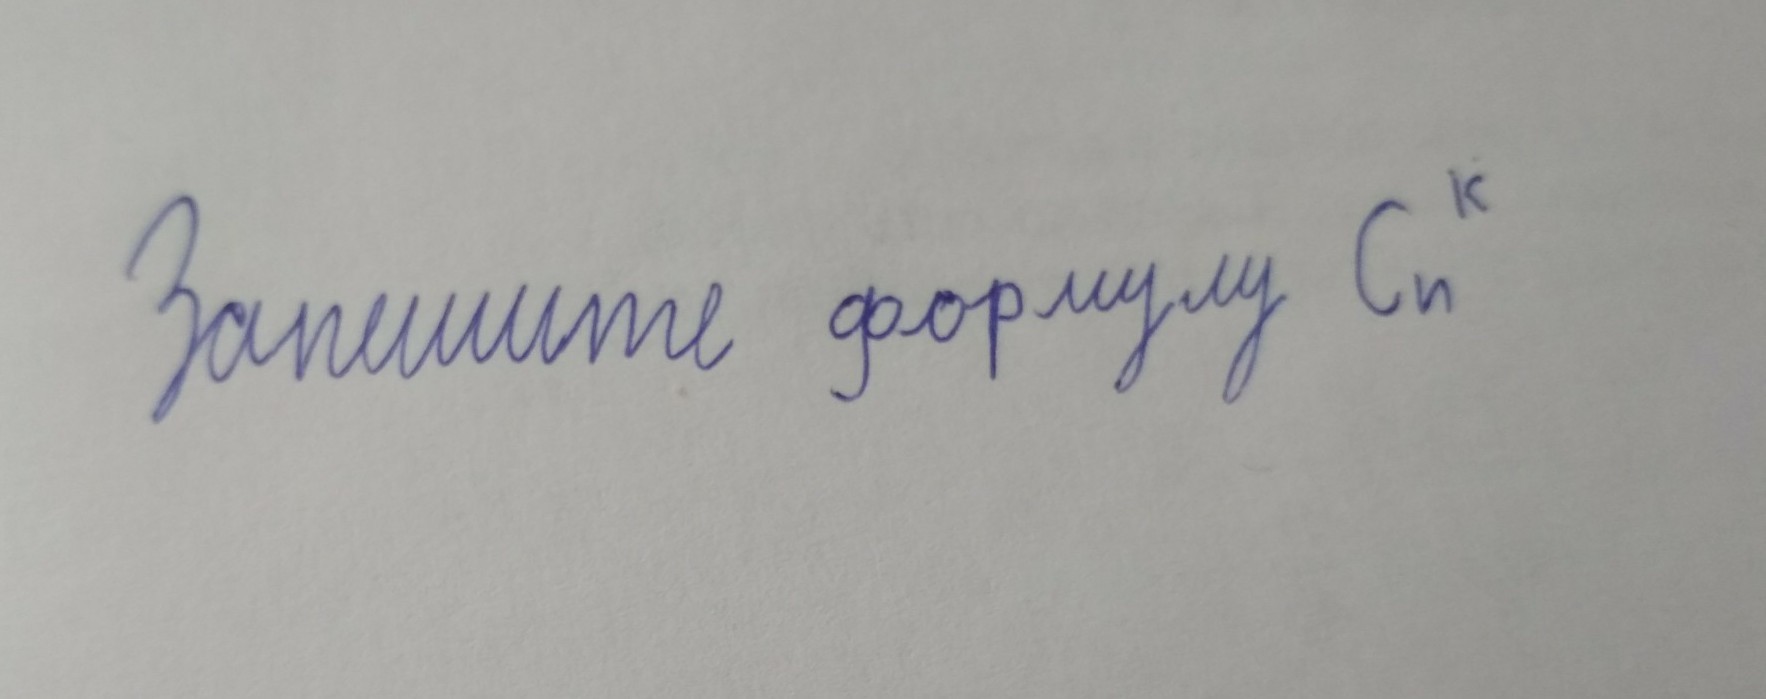 Запишите формулу Cₙᵏ